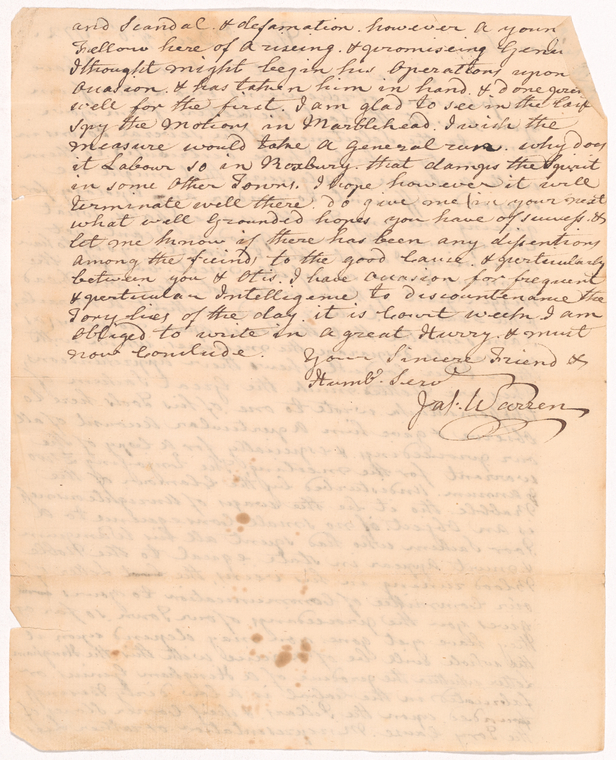 and Scandal. & defamation. however. a youn
Fellow here of a riseing. & promiseing Geniu
I thought might begin his Operations upon
Ocasion. & has taken him in hand. & done pret
well for the first. I am glad to see in the last
Spy the Motions in Marblehead. I wish the
measure would take a General run. why does
it Labour so in Roxbury. that damps the Spirit
in some Other Towns. I hope however it will
terminate well there. do give me (in your next
what well Grounded hopes you have of success. &
let me know if there has been any disentions
among the friends to the good Cause. & perticularly
between you & Otis. I have Ocasion for frequent
& perticular Intelligence to discountenance the
Tory lies of the day. it is Court week I am
obliged to write in a great Hurry. & must
now Conclude. Your Sincere Friend &
Humbl. Servt
Jas. Warren